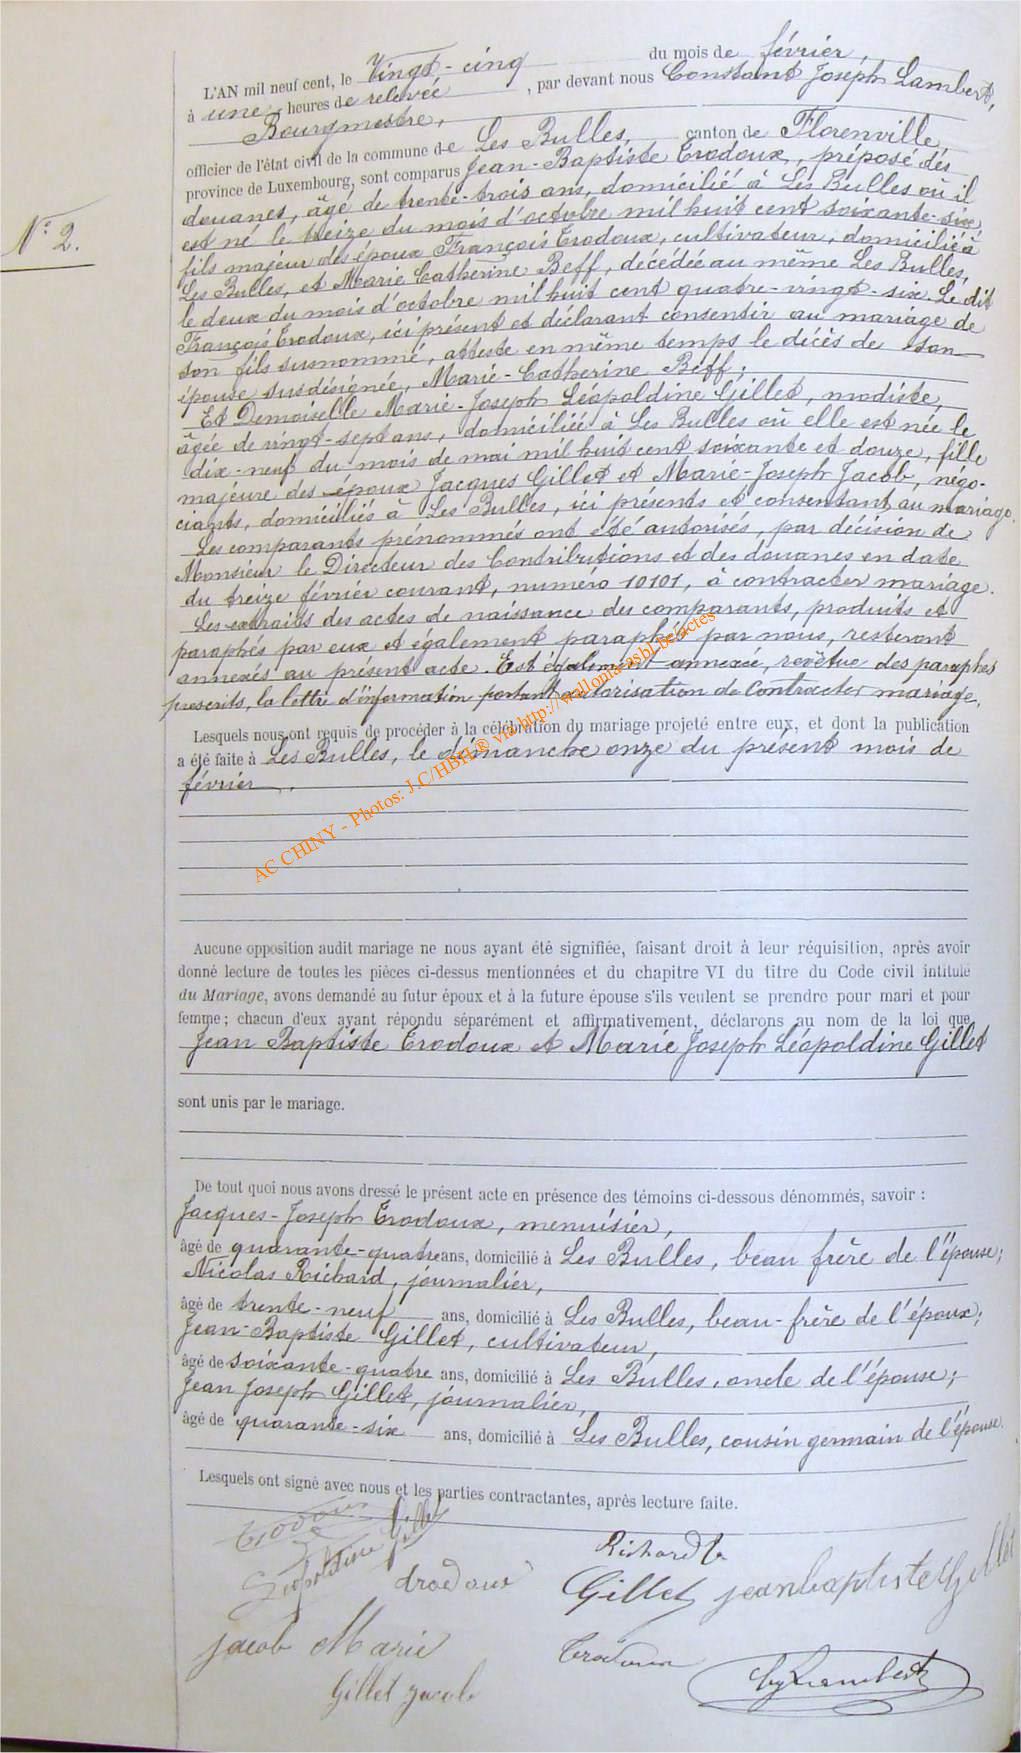 N° 2.
L'AN mil neuf cent, le Vingt-cinq du mois de février,
à une heures de relevée, par devant nous Constant Joseph Lambert,
Bourgmestre,
officier de l'état civil de la commune de Les Bulles, canton de Florenville,
province de Luxembourg, sont comparus Jean-Baptiste Trodoux, préposé des
douanes, âgé de trente-trois ans, domicilié à Les Bulles où il
est né le treize du mois d'octobre mil huit cent soixante-six,
fils majeur des époux François Trodoux, cultivateur, domicilié à
Les Bulles, et Marie Catherine Beff, décédée au même Les Bulles,
le deux du mois d'octobre mil huit cent quatre-vingt-six. Le dit
François Trodoux, ici présent et déclarant consentir au mariage de
son fils susnommé, atteste en même temps le décès de son
épouse susdésignée, Marie-Catherine Beff;
Et Demoiselle Marie-Joseph Léopoldine Gillet, modiste,
âgée de vingt-sept ans, domiciliée à Les Bulles où elle est née le
dix-neuf du mois de mai mil huit cent soixante et douze, fille
majeure des époux Jacques Gillet et Marie-Joseph Jacob, négo-
ciants, domiciliés à Les Bulles, ici présents et consentant au mariage.
Les comparants prénommés ont été autorisés, par décision de
Monsieur le Directeur des Contributions et des douanes en date
du treize février courant, numéro 10101, à contracter mariage.
Les extraits des actes de naissance des comparants, produits et
paraphés par eux et également paraphés par nous, resteront
annexés au présent acte. Est également annexée, revêtue des paraphes
prescrits, la lettre d'information portant autorisation de contracter mariage.
Lesquels nous ont requis de procéder à la célébration du mariage projeté entre eux, et dont la publication
a été faite à Les Bulles, le dimanche onze du présent mois de
février.
AC CHINY - Photos: J.C/HBH® via http://wallonia-asbl.be/actes
Aucune opposition audit mariage ne nous ayant été signifiée, faisant droit à leur réquisition, après avoir
donné lecture de toutes les pièces ci-dessus mentionnées et du chapitre VI du titre du Code civil intitulé
du Mariage, avons demandé au futur époux et à la future épouse s'ils veulent se prendre pour mari et pour
femme; chacun d'eux ayant répondu séparément et affirmativement, déclarons au nom de la loi que
Jean Baptiste Trodoux et Marie Joseph Léopoldine Gillet
sont unis par le mariage.
De tout quoi nous avons dressé le présent acte en présence des témoins ci-dessous dénommés, savoir :
Jacques-Joseph Trodoux, menuisier,
âgé de quarante-quatre ans, domicilié à Les Bulles, beau frère de l'épouse;
Nicolas Richard, journalier,
âgé de trente-neuf ans, domicilié à Les Bulles, beau-frère de l'époux;
Jean-Baptiste Gillet, cultivateur,
âgé de soixante-quatre ans, domicilié à Les Bulles, oncle de l'épouse;
Jean Joseph Gillet, journalier,
âgé de quarante-six ans, domicilié à Les Bulles, cousin germain de l'épouse.
Lesquels ont signé avec nous et les parties contractantes, après lecture faite.
Trodoux
Léopoldine Gillet
Richard
trodoux
Gillet
jean baptiste Gillet
jacob Marie
Trodoux
Gillet jacob
Lambert